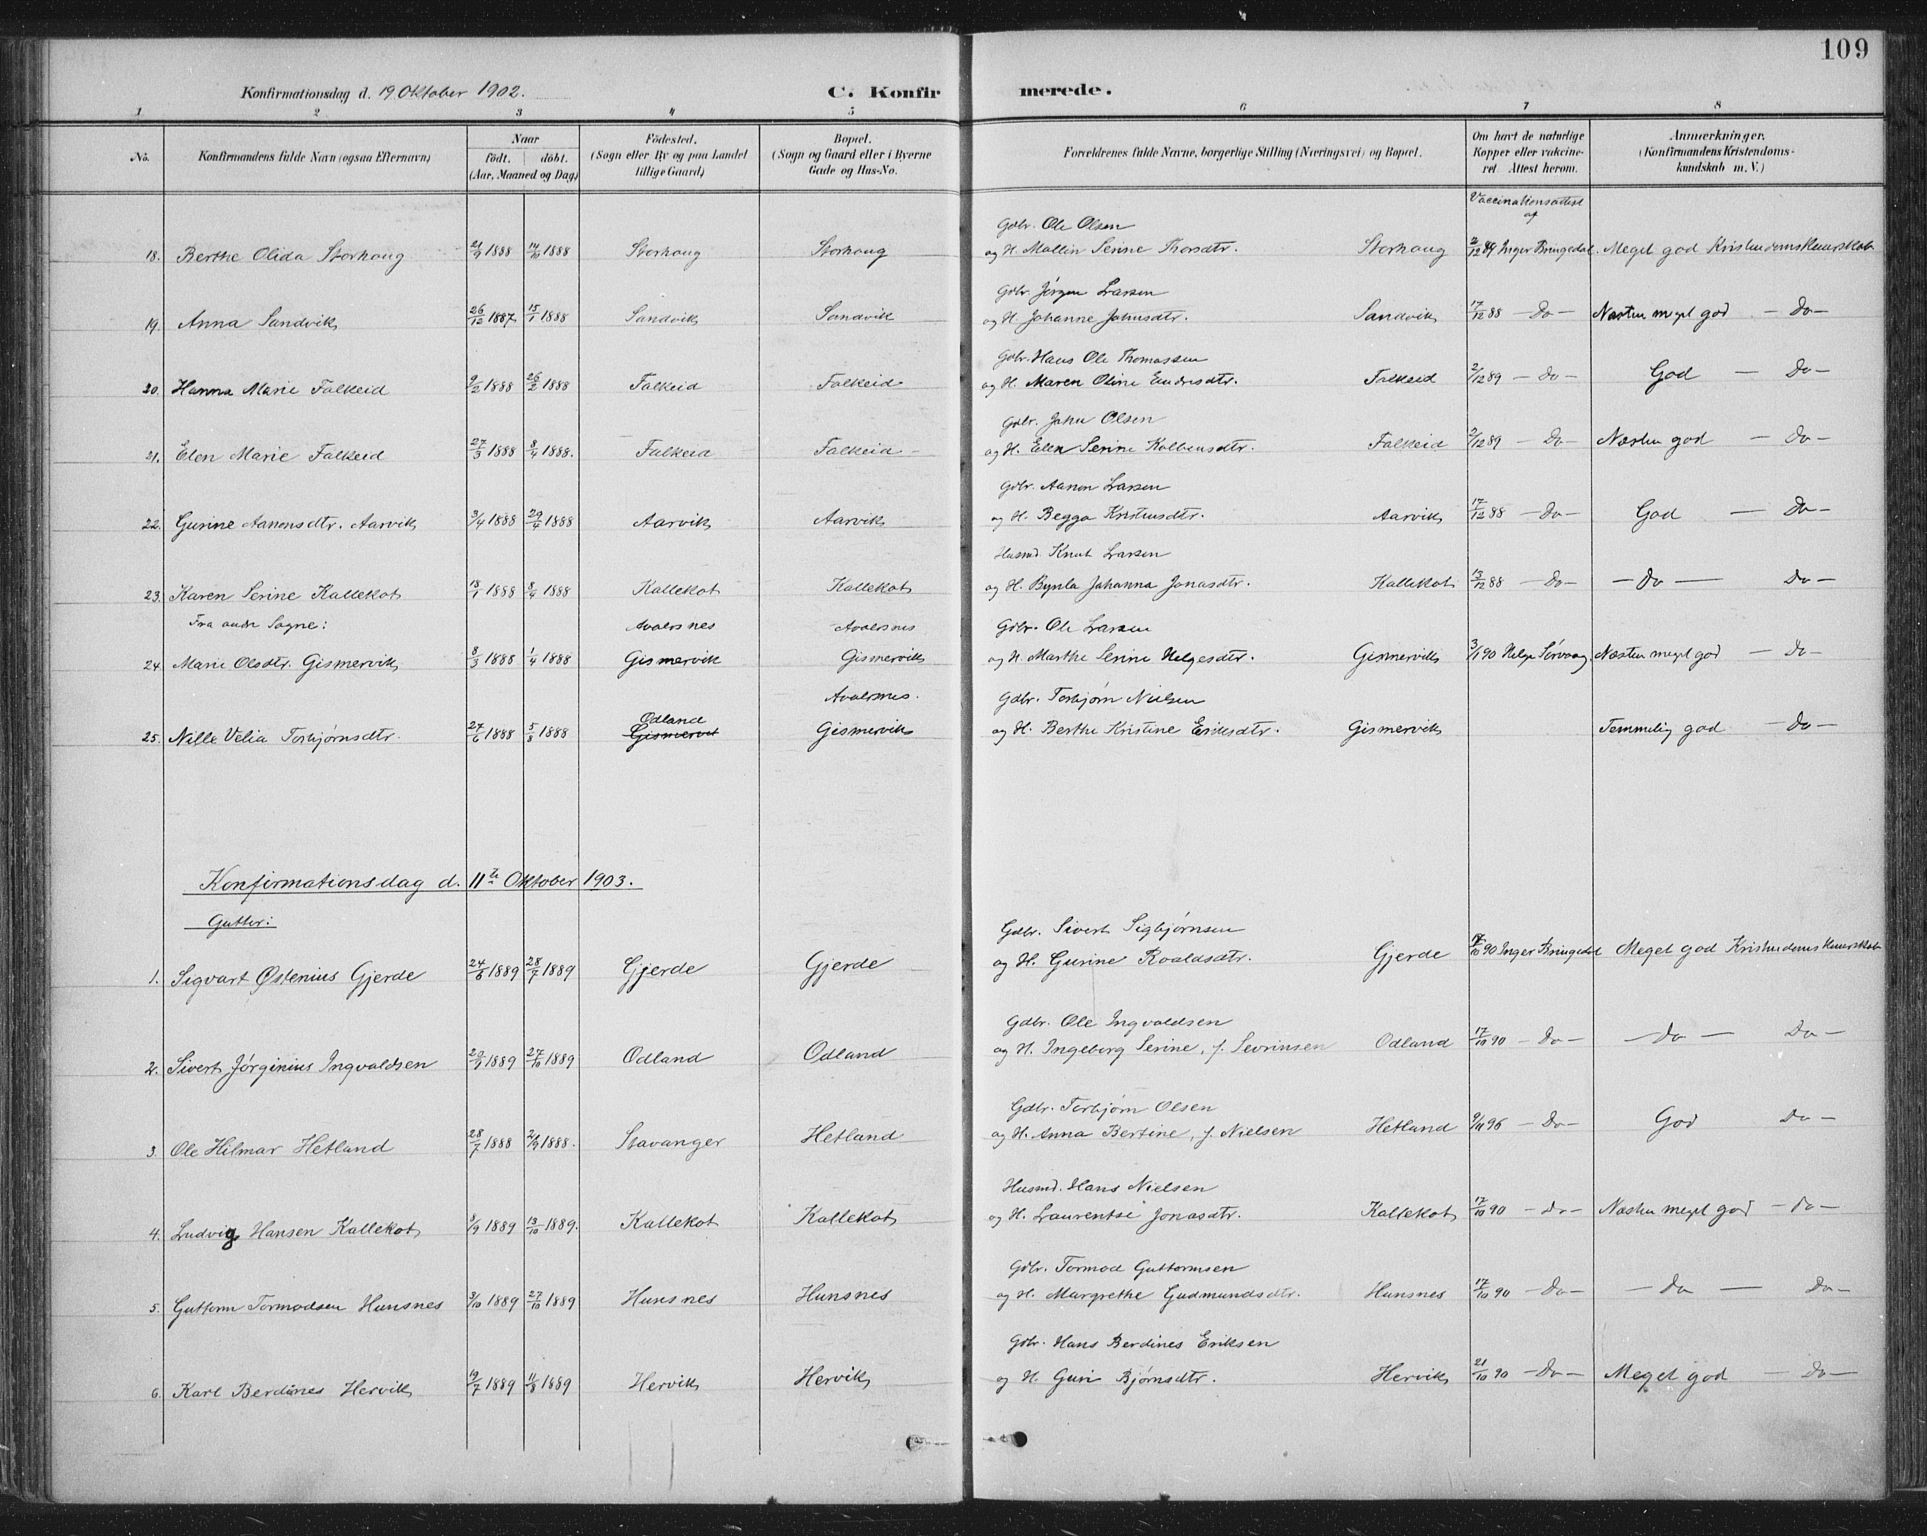 109
Konfirmationsdag d. 19 Oktober 1902. C. Konfirmerede.
1 2 3 4 5 6 7 8
No. Konfirmandens fulde Navn (ogsaa Efternavn) Naar födt. döbt. (Aar, Maaned og Dag) Födested. (Sogn eller By og paa Landet tillige Gaard) Bopæl. (Sogn og Gaard eller i Byerne Gade og Hus-No. Forældrenes fulde Navne, borgerlige Stilling (Næringsvei) og Bopæl. Om havt de naturlige Kopper eller vakcineret. Attest herom. Anmærkninger. (Konfirmandens Kristendomskundskab m. V.)
Vaccinationsattest af
Gdbr. Ole Olsen
18. Berthe Olida Storhaug 21/9 1888 14/10 1888 Storhaug Storhaug og H. Mallin Serine Thorsdtr. Storhaug 2/12 89 Inger Bringedal. Meget god Kristendomskundskab
Gdbr. Jörgen Larsen
19. Anna Sandvik 26/12 1887 15/1 1888 Sandvik Sandvik og H. Johanne Johnsdtr. Sandvik 17/12 88 — Do — Næsten meget god — Do —
Gdbr. Hans Ole Thomassen
20. Hanna Marie Falkeid 9/2 1888 26/2 1888 Falkeid Falkeid og H. Maren Oline Endresdtr. Falkeid 2/12 89 — Do — God — Do —
Gdbr. John Olsen
21. Elen Marie Falkeid 27/3 1888 8/4 1888. Falkeid Falkeid og H. Elen Serine Kolbensdtr. Falkeid 2/12 89 — Do — Næsten god — Do —
Gdbr. Aanon Larsen
22. Gurine Aanonsdtr. Aarvik 3/4 1888 29/4 1888 Aarvik Aarvik og H. Begga Kristensdtr. Aarvik 17/12 88 — Do — God — Do —
Husmd. Knut Larsen
23. Karen Serine Kallekot 18/1 1888 8/4 1888 Kallekot Kallekot og H. Johanna Jonasdtr. Kallekot 13/12 88 — Do — — Do — Do —
Fra andre Sogne: Avalsnes Avalsnes Gdbr. Ole Larsen
24. Marie Olsdtr. Gismervik 8/3 1888 1/4 1888 Gismervik Gismervik og H. Marthe Serine Helgesdtr. Gismervik 3/1 90 Helge Sørvaag. Næsten meget god — Do —
Avalsnes. Gdbr. Torbjørn Nielsen
Odland
25. Nille Velia Torbjørnsdtr. 27/6 1888 5/8 1888 Gismervik Gismervik og H. Berthe Kristine Eriksdtr. Gismervik Temmelig god — Do —
Konfirmationsdag d. 11te Oktober 1903.
Gutter: Gdbr. Sivert Sigbjørnsen
1. Sigvart Østenius Gjerde 24/6 1889 28/7 1889 Gjerde Gjerde og H. Gurine Roaldsdtr. Gjerde 17/10 90 Inger Bringedal Meget god Kristendomskundskab
Gdbr. Ole Ingvaldsen
2. Sivert Jørginius Ingvaldsen 1889 27/10 1889 Odland Odland og H. Ingeborg Serine, f. Sevrinsen Odland 17/10 90 — Do — — Do — Do —
Gdbr. Torbjørn Olsen
3. Ole Hilmar Hetland 28/7 1888 2/9 1888. Stavanger Hetland og H. Anna Bertine, f. Nielsen Hetland 9/11 96 — Do — God Do —
Husmd. Hans Nielsen
4. Ludvig Hansen Kallekot 8/9 1889 13/10 1889. Kallekot Kallekot og H. Laurentse Jonasdtr. Kallekot 17/10 90 — Do — Næsten meget god — Do —
Gdbr. Tormod Guttormsen
5. Guttorm Tormodsen Hunsnes 3/10 1889 27/10 1889 Hunsnes Hunsnes og H. Margrethe Gudmundsdtr. Hunsnes 17/10 90 — Do — — Do — Do —
Gdbr. Hans Berdines Eriksen
6. Karl Berdines Hervik 19/7 1889 11/8 1889 Hervik Hervik og H. Guri Bjørnsdtr. Hervik 21/10 90 — Do — Meget god — Do —